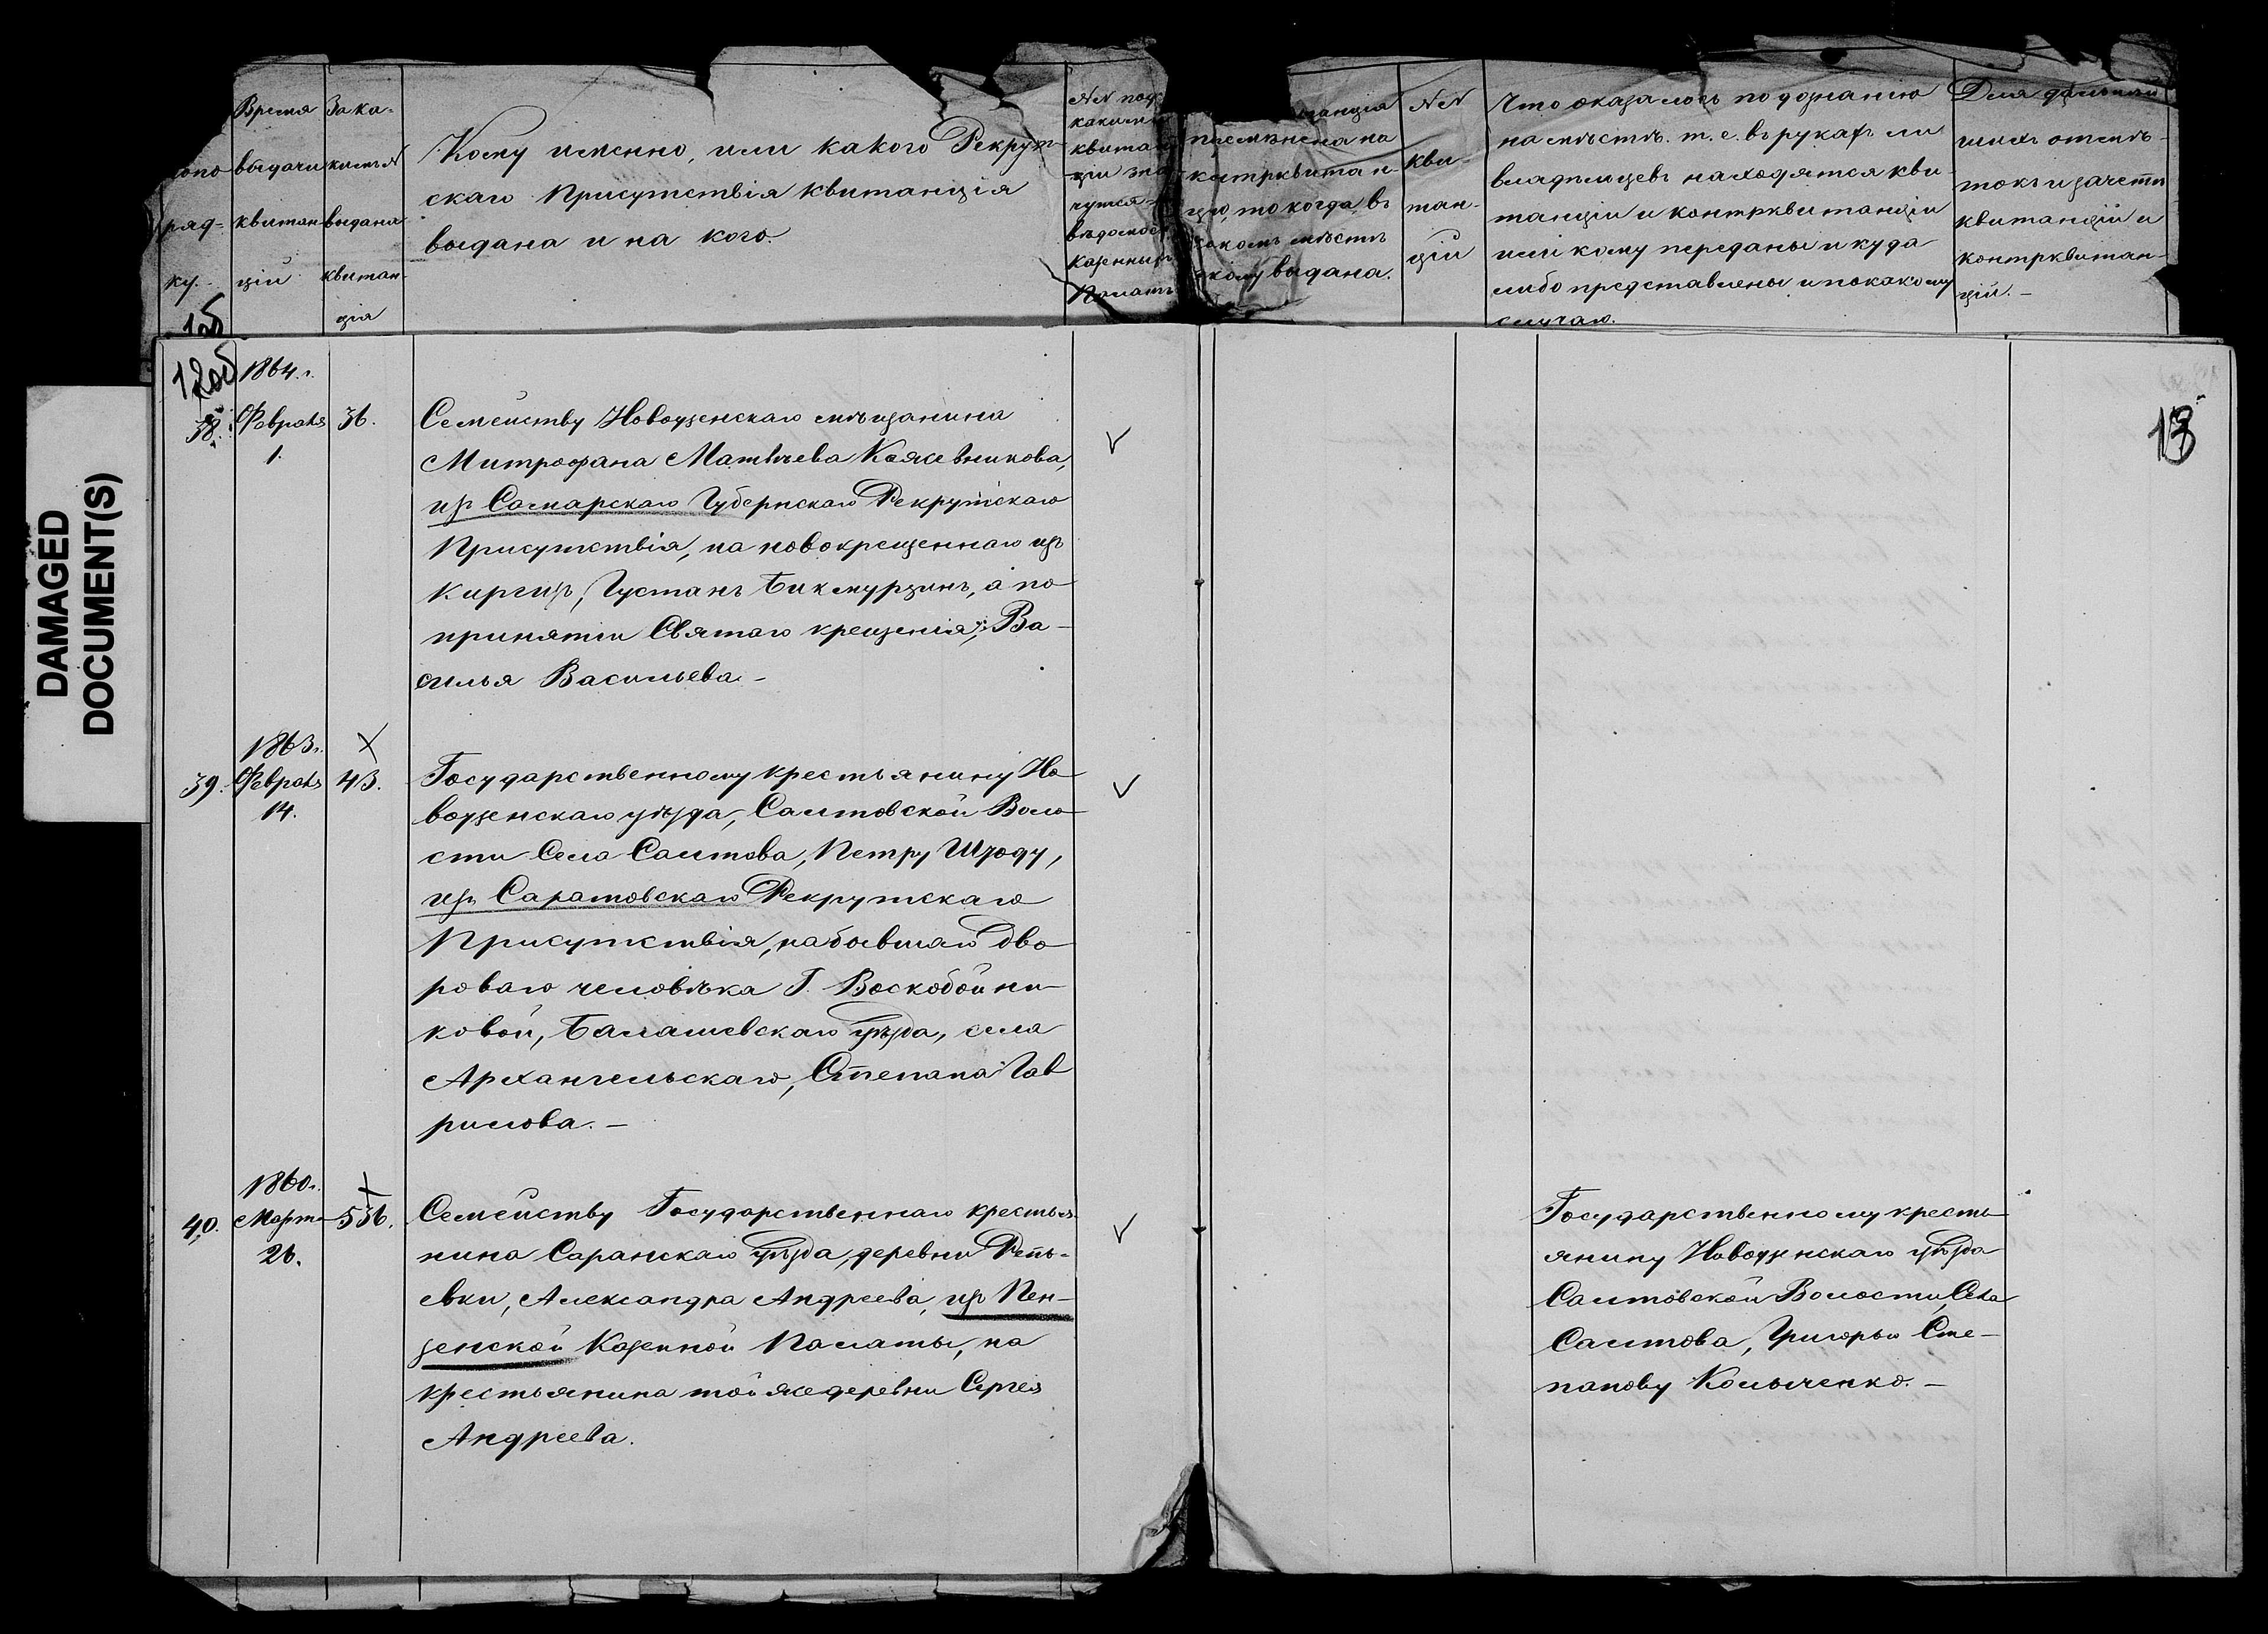 DAMAGED
DOCUMENT(S)
Время
выдачи
квитан
цій
ряд-
ку.
За ка-
кимъ N
выдана
квитан-
ція
Кому именно, или какого Рекрут-
скаго Присутствія квитанція
выдана и на кого.
NN под
какими
квита
ціи
чутся
вѣдомос
Казенныхъ
Палатъ
танція
на
контрквитан-
цію, то когда, въ
какомъ мѣстѣ
кому выдана.
NN
кви-
тан-
цій
Что оказалось по дознанію
на мѣстѣ. т. е. въ рукахъ ли
владѣльцевъ находятся кви-
танціи и контрквитанціи
или кому переданы и куда
либо представлены и по какому
случаю.
Для дальнѣй
шихъ отмѣ-
токъ и зачетѣ
квитанцій и
контрквитан-
цій.-
1об
12об
13
1864.г.
38.
Февраля
1.
36.
Семейству Новоузенскаго мѣщанина
Митрофана Матвѣева Кожевникова,
изъ Самарскаго Губернскаго Рекрутскаго
Присутствія, на новокрещеннаго изъ
Киргизъ, Густанъ Бикмурзинъ, а по
принятіи Святаго крещенія, Ва-
силья Васильева.-
1863г.
39.
Февраля
14.
43.
Государственному крестьянину Но-
воузенскаго уѣзда, Салтовской Воло-
сти Села Салтова, Петру Шроду,
изъ Саратовскаго Рекрутскаго
Присутствія, на бывшаго дво-
роваго человѣка Г. Воскобойни-
ковой, Балашевскаго Уѣзда, села
Архангельскаго, Степана Гав
рилова.-
1860г.
40.
Марта
26.
536.
Семейству Государственнаго крестья-
нина Саранскаго Уѣзда, деревни Репь-
евки, Александра Андреева, изъ Пен-
зенской Казенной Палаты, на
крестьянина той же деревни Сергея
Андреева.
Государственному кресть-
янину Новоузенскаго Уѣзда
Салтовской Волости, Села
Салтова, Григорью Сте-
панову Колыченко.-